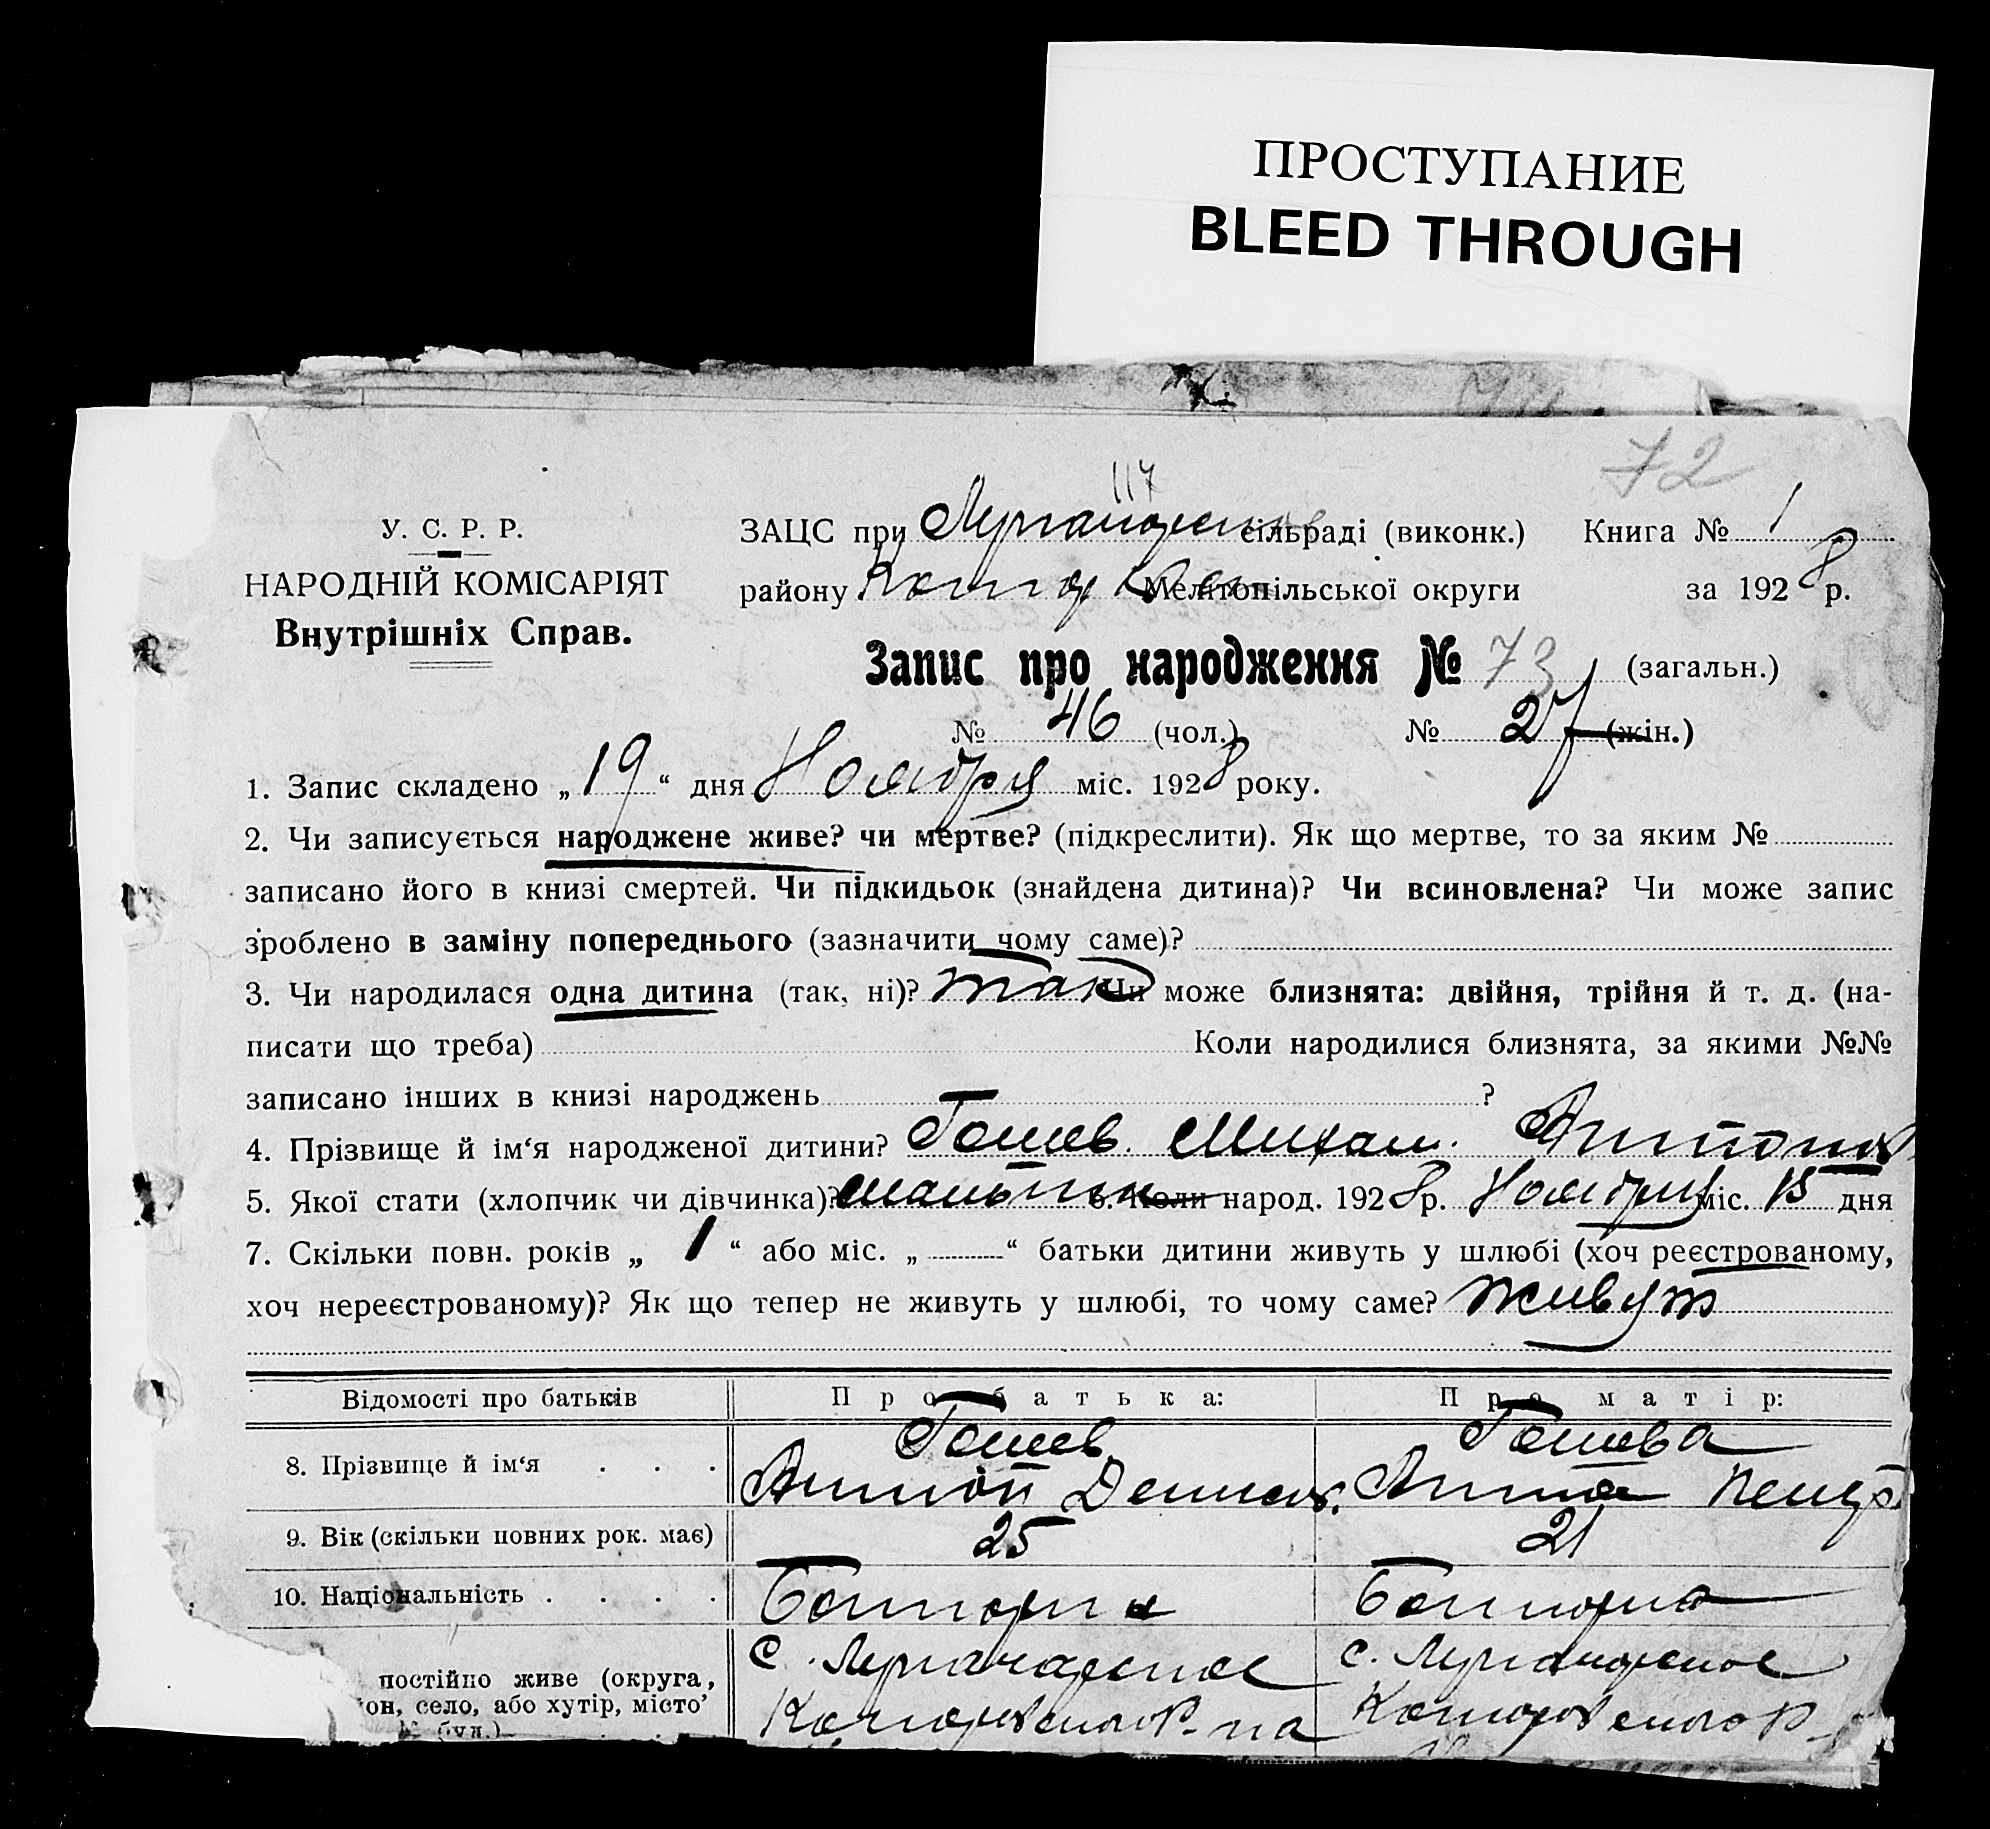 ПРОСТУПАНИЕ
BLEED THROUGH
72
117
У. С. Р. Р.
НАРОДНІЙ КОМІСАРІЯТ
Внутрішніх Справ.
ЗАЦС при сільраді (виконк.) Книга № 1
району Мелітопільської округи за 1928 р.
Запис про народження № 73 (загальн.)
№ 46 (чол.) № 27 (жін.)
1. Запис складено „19“ дня Ноября міс. 1928 року.
2. Чи записується народжене живе? чи мертве? (підкреслити). Як що мертве, то за яким №
записано його в книзі смертей. Чи підкидьок (знайдена дитина)? Чи всиновлена? Чи може запис
зроблено в заміну попереднього (зазначити чому саме)?
3. Чи народилася одна дитина (так, ні)? так Чи може близнята: двійня, трійня й т. д. (на-
писати що треба) Коли народилися близнята, за якими №№
записано інших в книзі народжень ?
4. Прізвище й ім‘я народженої дитини? Гошев Михаил
5. Якої стати (хлопчик чи дівчинка)? 6. Коли народ. 1928 р. Ноября міс. 15 дня
7. Скільки повн. років „ 1 “ або міс. „ “ батьки дитини живуть у шлюбі (хоч реєстрованому,
хоч нереєстрованому)? Як що тепер не живуть у шлюбі, то чому саме? живут
Відомості про батьків Про батька: Про матір:
Гошев Гошева
8. Прізвище й ім‘я . . . Антон Анна
9. Вік (скільки повних рок. має) 25 21
10. Національність . . . . Болгорка
постійно живе (округа, с. с.
он, село, або хутір, місто
буд.)